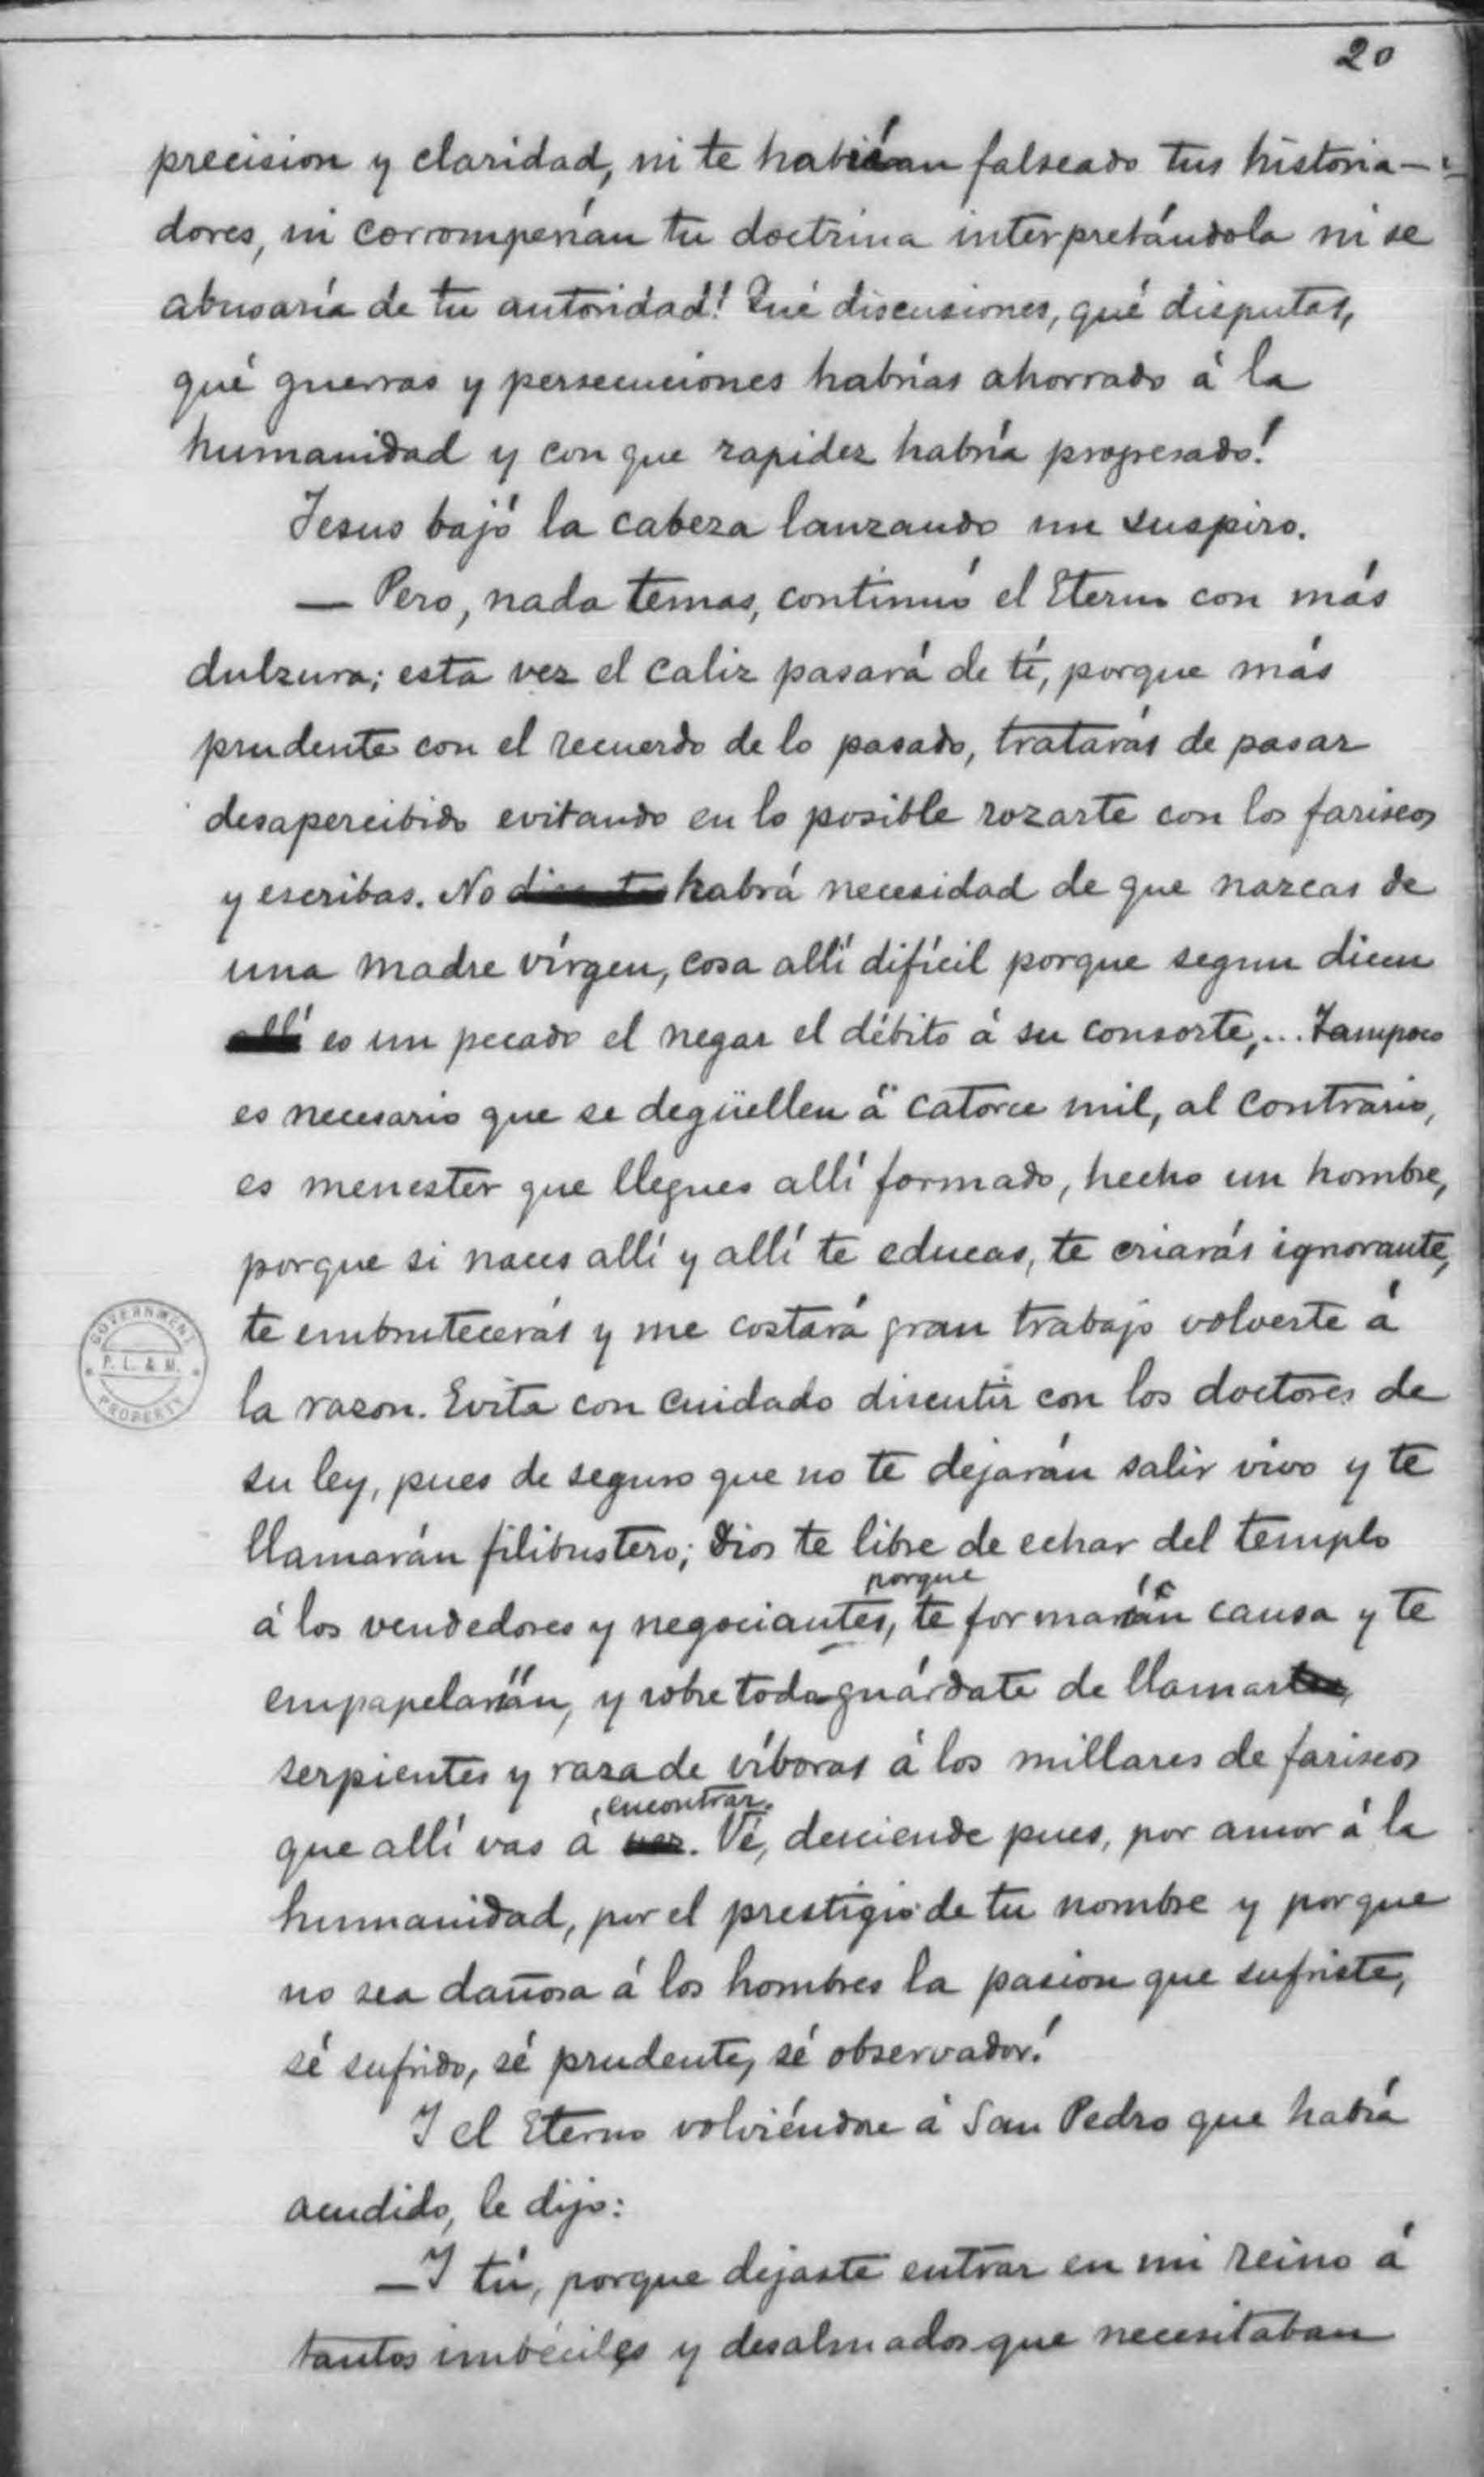 20
precision y claridad, ni te habían falseado tus historia-
dores, ni corromperían tu doctrina interpretándola ni se
abusaría de tu autoridad! Qué discusiones, qué disputas,
qué guerras y persecuciones habrías ahorrado á la
humanidad y con que rapidez habría progresado!
Jesus bajó la cabeza lanzando un suspiro.
— Pero, nada temas, continuó el Eterno con más
dulzura; esta vez el caliz pasará de tí, porque más
prudente con el recuerdo de lo pasado, tratarás de pasar
desapercibido evitando en lo posible rozarte con los fariseos
y escribas. No habrá necesidad de que nazcas de
una madre vírgen, cosa allí difícil porque segun dicen
allí es un pecado el negar el débito á su consorte,... Tampoco
es necesario que se degüellen á catorce mil, al contrario,
es menester que llegues allí formado, hecho un hombre,
porque si naces allí y allí te educas, te criarás ignorante,
te embrutecerás y me costará gran trabajo volverte á
la razon. Evita con cuidado discutir con los doctores de
su ley, pues de seguro que no te dejarán salir vivo y te
llamarán filibustero; Dios te libre de echar del templo
porque
á los vendedores y negociantes, te formarán causa y te
empapelarán, y sobre todo guárdate de llamar
serpientes y raza de víboras á los millares de fariseos
encontrar.
que allí vas á ver. Vé, desciende pues, por amor á la
humanidad, por el prestigio de tu nombre y porque
no sea dañosa á los hombres la pasion que sufriste,
sé sufrido, sé prudente, sé observador!
Y el Eterno volviéndose á San Pedro que había
acudido, le dijo:
— Y tú, porque dejaste entrar en mi reino á
tantos imbéciles y desalmados que necesitaban
GOVERNMENT
P. L. & M.
PROPERTY